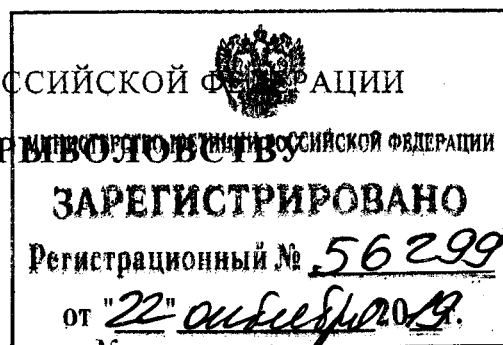 ССИЙСКОЙ ФЕДЕРАЦИИ
РЫБОЛОВСТВУ
МИНИСТЕРСТВО ЮСТИЦИИ РОССИЙСКОЙ ФЕДЕРАЦИИ
ЗАРЕГИСТРИРОВАНО
Регистрационный № 56299
от "22" октября 2019.